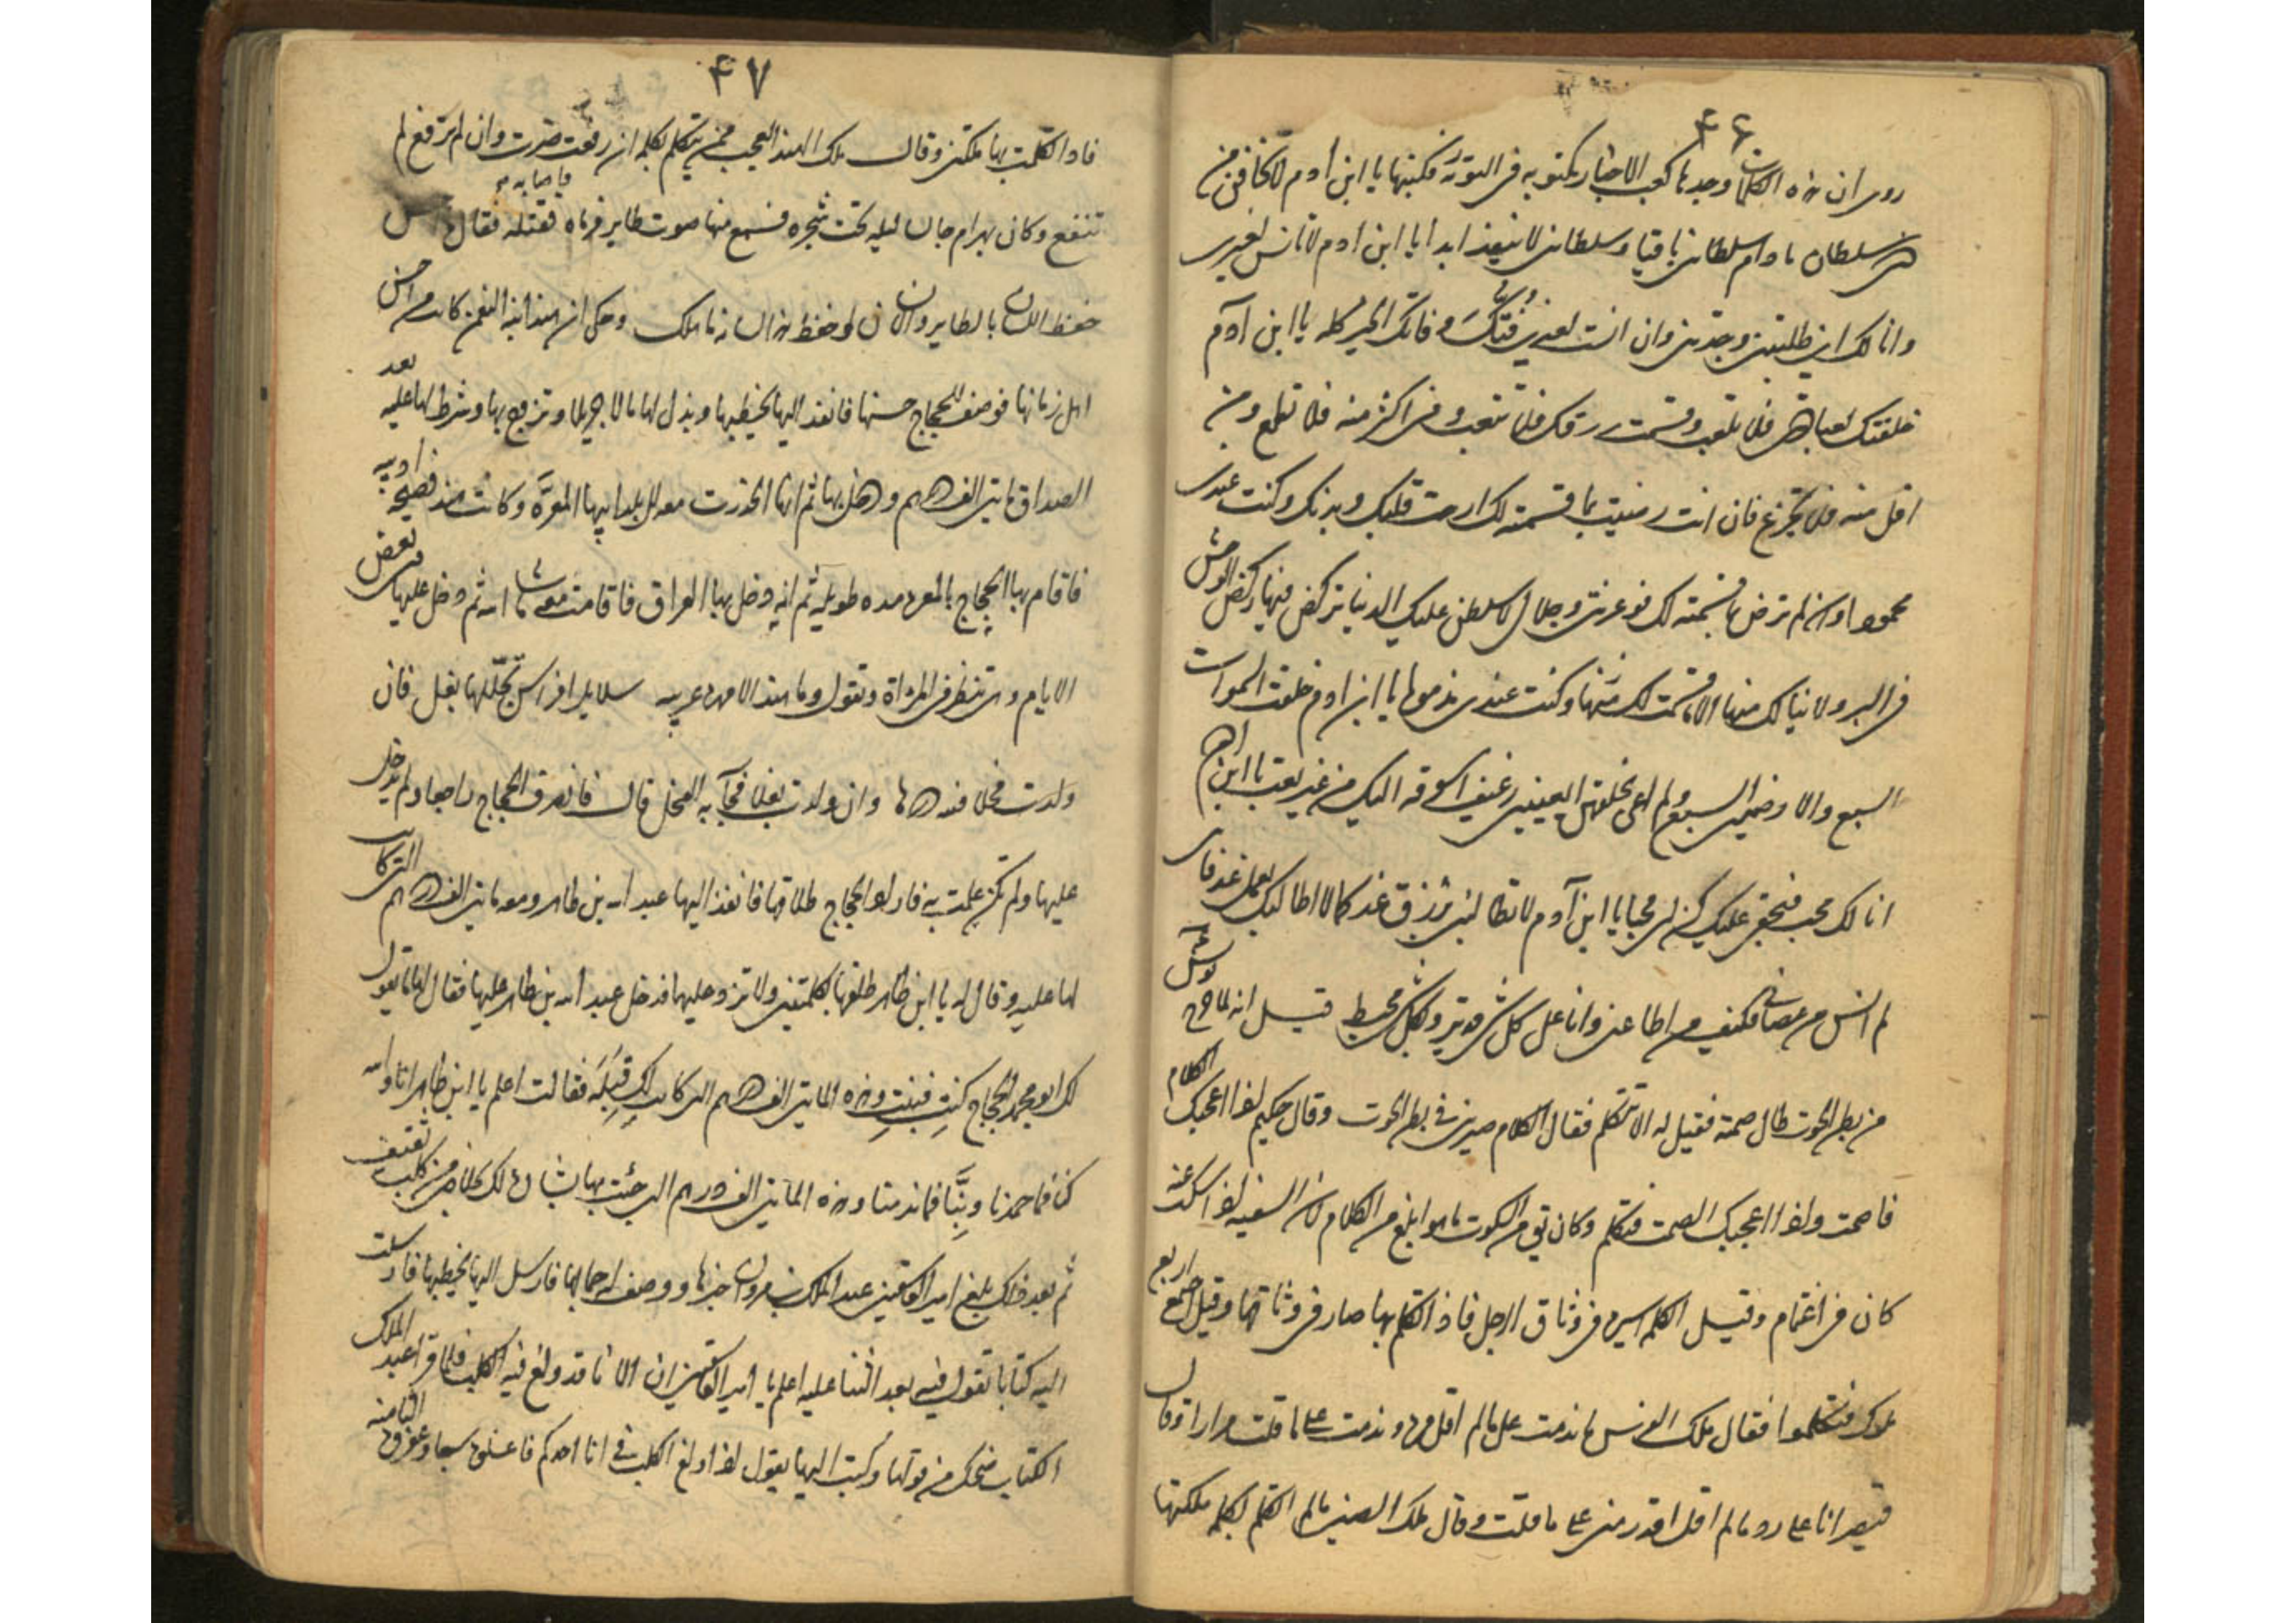 ۴۶
روى ان هذه الكلمات وجدها كعب الاحبار مكتوبه فى التورية فكتبها يا ابن ادم لا تخافن من
ذى سلطان ما دام سلطانى باقيا و سلطانى لا ينفذ ابدا يا ابن ادم لا تانس لغيرى
وانا لك ان طلبتنى وجدتنى وان انست بغيرى فتك وفاتك الخير كله يا ابن آدم
خلقتك لعبادتى فلا تلعب وقسمت رزقك فلا تتعب وفى اكثر منه فلا تطمع ومن
اقل منه فلا تجزع فان انت رضيت بما قسمته لك ارحت قلبك وبدنك وكنت عندى
محمودا وان لم ترض بما قسمته لك فوعزتى وجلالى لاسلطن عليك الدنيا تركض فيها ركض الوحش
فى البر ولا ينالك منها الا ما قسمت لك منها وكنت عندى مذموما يا ابن ادم خلقت السموات
السبع والارضين السبع ولم اعى بخلقهن ايعيينى رغيف اسوقه اليك من غير تعب يا ابن ادم
انا لك محب فبحقى عليك كن لى محبا يا ابن آدم لا تطالبنى برزق غد كما لا اطالبك بعمل غد فانى
لم انس من عصانى فكيف من اطاعنى وانا على كل شئ قدير وبكل شئ محيط قيل انه لما خرج يونس ع
من بطن الحوت طال صمته فقيل له الا تتكلم فقال الكلام صيرنى فى بطن الحوت وقال حكيم اذا اعجبك الكلام
فاصمت واذا اعجبك الصمت فتكلم وكان يقى من السكوت ما هو ابلغ من الكلام لان السفيه اذا سكت عنه
كان فى اغتمام وقيل الكلمه اسيره فى وثاق الرجل فاذا تكلم بها صار فى وثاقها وقيل اجتمع اربع
ملوك فتكلموا فقال ملك الفرس ما ندمت على ما لم اقل مره وندمت على ما قلت مرارا وقال
قيصر انا على رد ما لم اقل اقدر منى على ما قلت وقال ملك الصين ما لم اتكلم بكلمه ملكتها
۴۷
فاذا تكلمت بها ملكتنى وقال ملك الهند العجب ممن يتكلم بكلمه ان رفعت ضرت وان لم ترفع لم
تنفع وكان بهرام جالسا ليله تحت شجره فسمع منها صوت طاير فرماه فاصابه فقتله فقال ما احسن
حفظ اللسان بالطاير والانسان لو حفظ هذا لسانه ما هلك وحكى ان هند ابنه النعمن كانت احسن
اهل زمانها فوصف للحجاج حسنها فانفذ اليها يخطبها وبذل لها مالا جزيلا وتزوج بها وشرط لها عليه بعد
الصداق مايتى الف درهم ودخل بها ثم انها انحدرت معه الى بلد ابيها المعره وكانت هند فصيحه اديبه
فاقام بها الحجاج بالمعره مده طويله ثم انه رحل بها الى العراق فاقامت معه ما شاء الله ثم دخل عليها فى بعض
الايام وهى تنظر فى المراة وتقول وما هند الا مهره عربيه سلاله افراس تحللها بغل فان
ولدت فحلا فلله درها وان ولدت بغلا فجآء به البغل قال فانصرف الحجاج راجعا ولم يدخل
عليها ولم تكن علمت به فاراد الحجاج طلاقها فانفذ اليها عبد الله بن طاهر ومعه مايتى الف درهم التى كانت
لها عليه وقال له يا ابن طاهر طلقها بكلمتين ولا تزد عليهما فدخل عبد الله بن طاهر عليها فقال لها يقول
لك ابو محمد الحجاج كنتِ فبنتِ وهذه المايتى الف درهم التى كانت لكِ قِبَلَه فقالت اعلم يا ابن طاهر انا والله
كنا فما حمدنا وبِنَّا فما ندمنا وهذه المايتى الف درهم التى جئت بها بشاره لك بخلاصى من كلب ثقيف
ثم بعد ذلك بلغ امير الفاسقين عبد الملك بن مروان خبرها ووصف له جمالها فارسل اليها يخطبها فارسلت
اليه كتابا تقول فيه بعد الثنا عليه اعلم يا امير الفاسقين ان الانا قد ولغ فيه الكلب فلما قرا عبد الملك
الكتاب ضحك من قولها وكتب اليها يقول اذا ولغ الكلب فى انا احدكم فاغسلوه سبعا وعفروه الثامنه